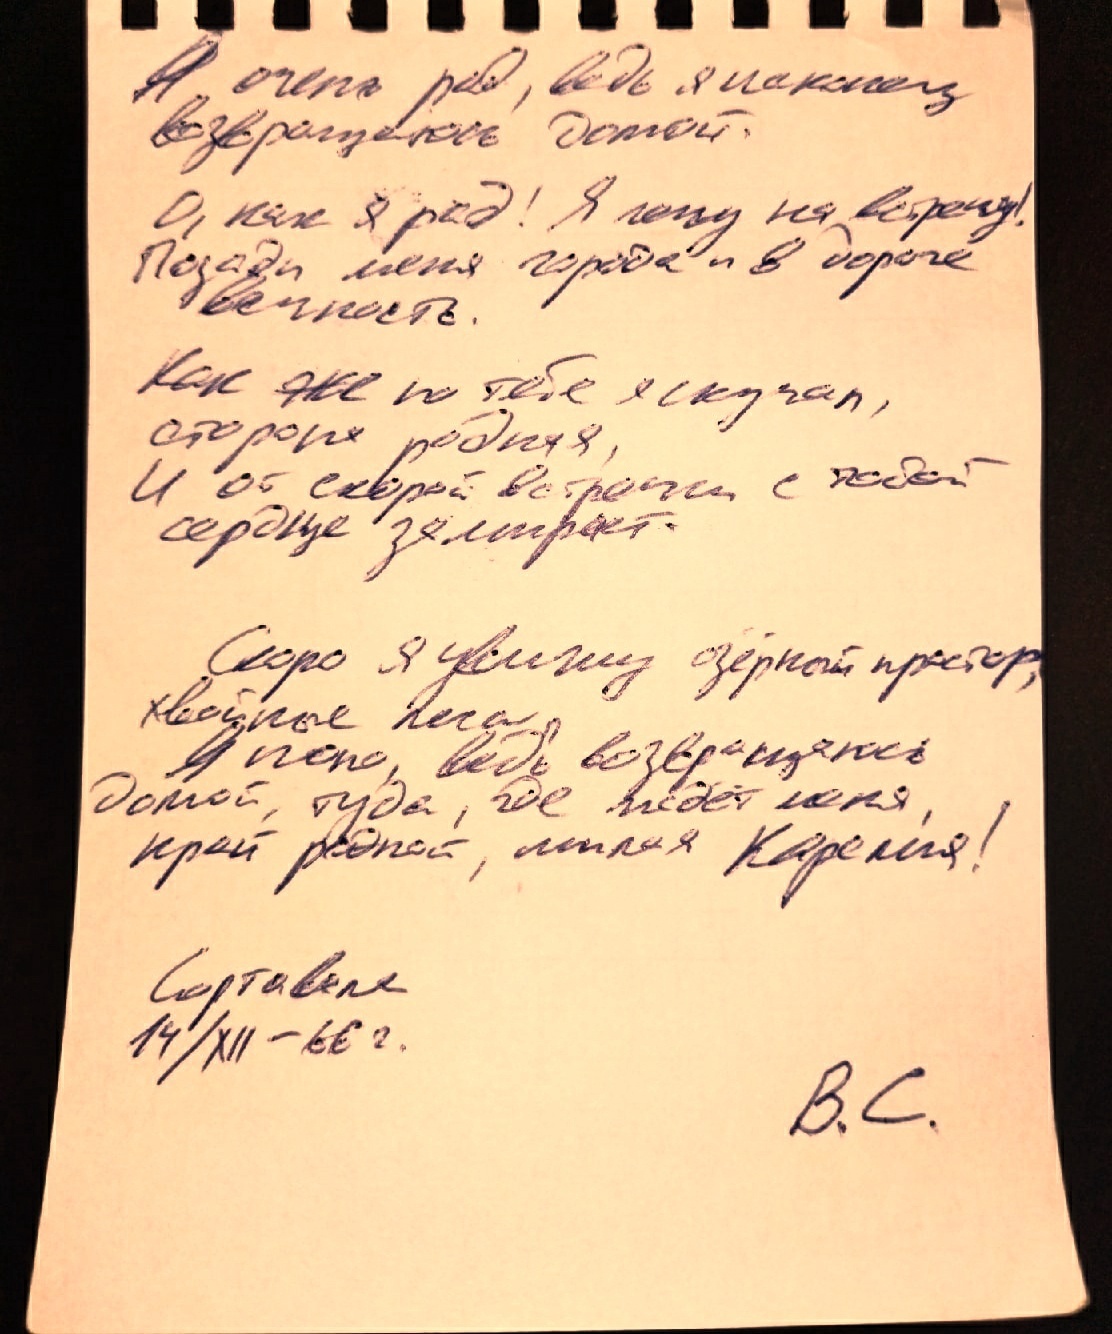 Я очень рад, ведь я наконец
возвращаюсь домой.
О, как я рад! Я лечу на встречу!
Позади меня города и в дороге
вечность.
Как же по тебе я скучал,
сторона родная,
И от скорой встречи с тобой
сердце замирает.
Скоро я увижу озёрный простор,
хвойные леса,
Я пою, ведь возвращаюсь
домой, туда, где ждёт меня,
край родной, милая Карелия!
Сортавала
14/XII-66 г.
В.С.